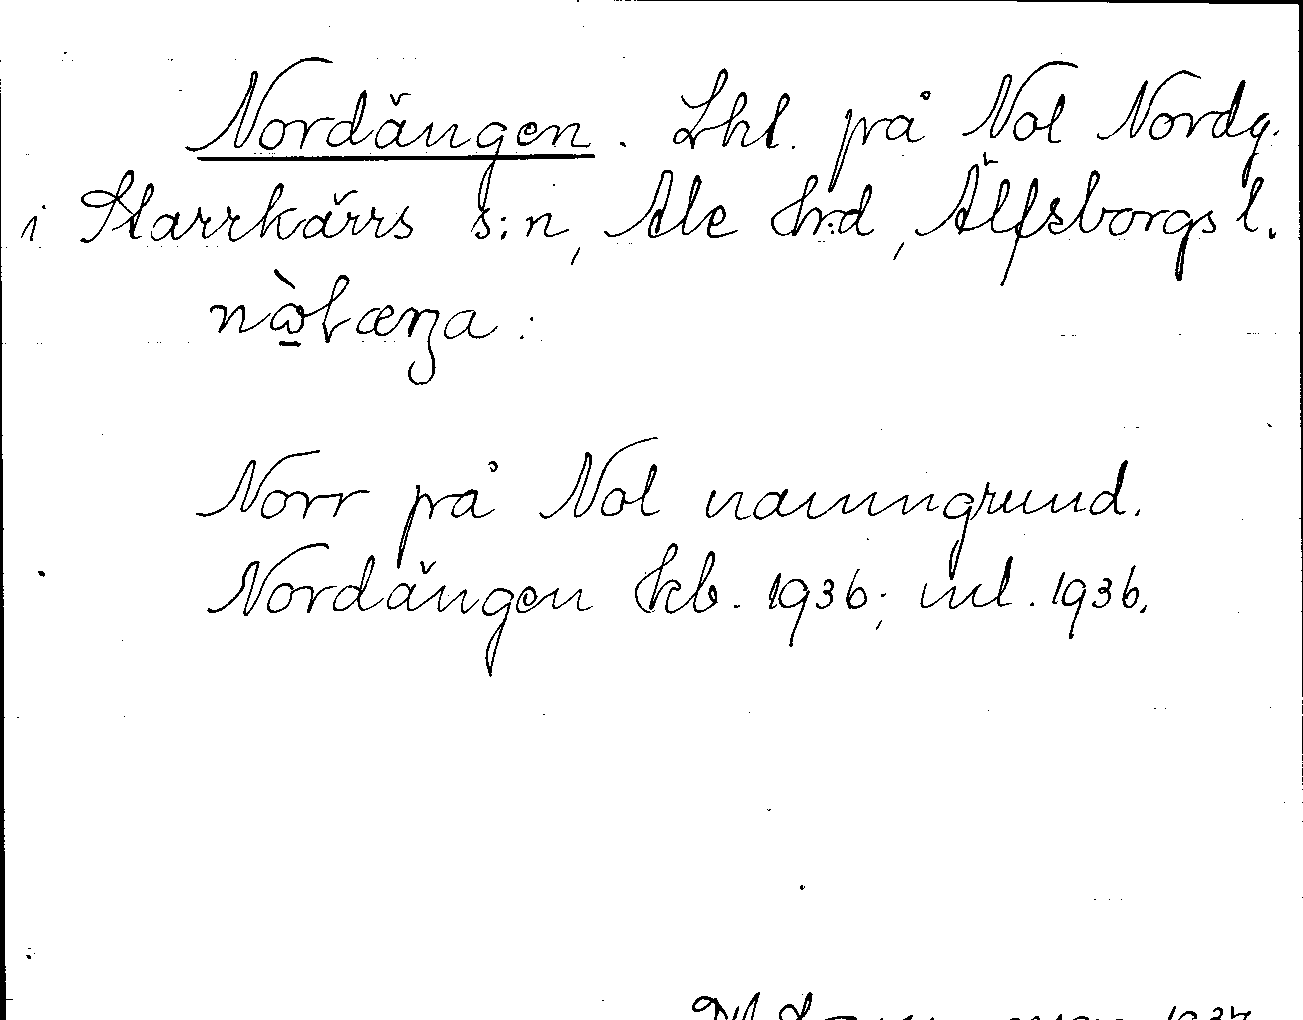 Nordängen. Lhl. på Nol Nordg.
i Starrkärrs s:n, Ale hrd, Älfsborgs l.
Norr på Nol namngrund.
Nordängen kb. 1936; ml. 1936.
1937